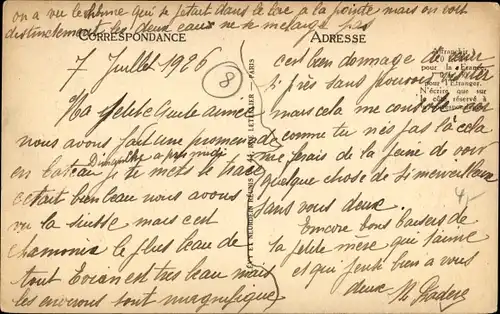 on a vu le Rhône qui se jetait dans le lac à la pointe mais on voit
distinctement les deux eaux ne se mélange pas
CORRESPONDANCE
7 Juillet 1926
8
Ma petite
nous avons fait une promenade
en bateau Dimanche après midi je te mets le tracé
c'était bien beau nous avons
vu la suisse mais c'est
chamonix le plus beau de
tout Evian est très beau mais
les environs sont magnifique
PARIS
ADRESSE
Affranchir à
pour la France
pour l'Etranger.
N'écrire que sur
le côté réservé à
c'est bien dommage de
si près sans pouvoir
mais cela me
comme tu n'es pas là cela
me ferais de la peine de voir
quelque chose de si merveilleux
sans vous deux.
4
Encore bons baisers de
ta petite mère qui t'aime
et qui pense bien à vous
deux